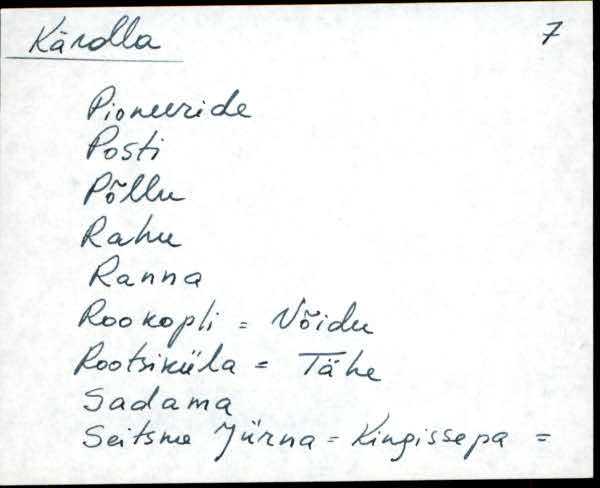 Kärdla 7
Pioneeride
Posti
Põllu
Rahu
Ranna
Rookopli = Võidu
Rootsiküla = Tähe
Sadama
Seitsme Jürna = Kingissepa =